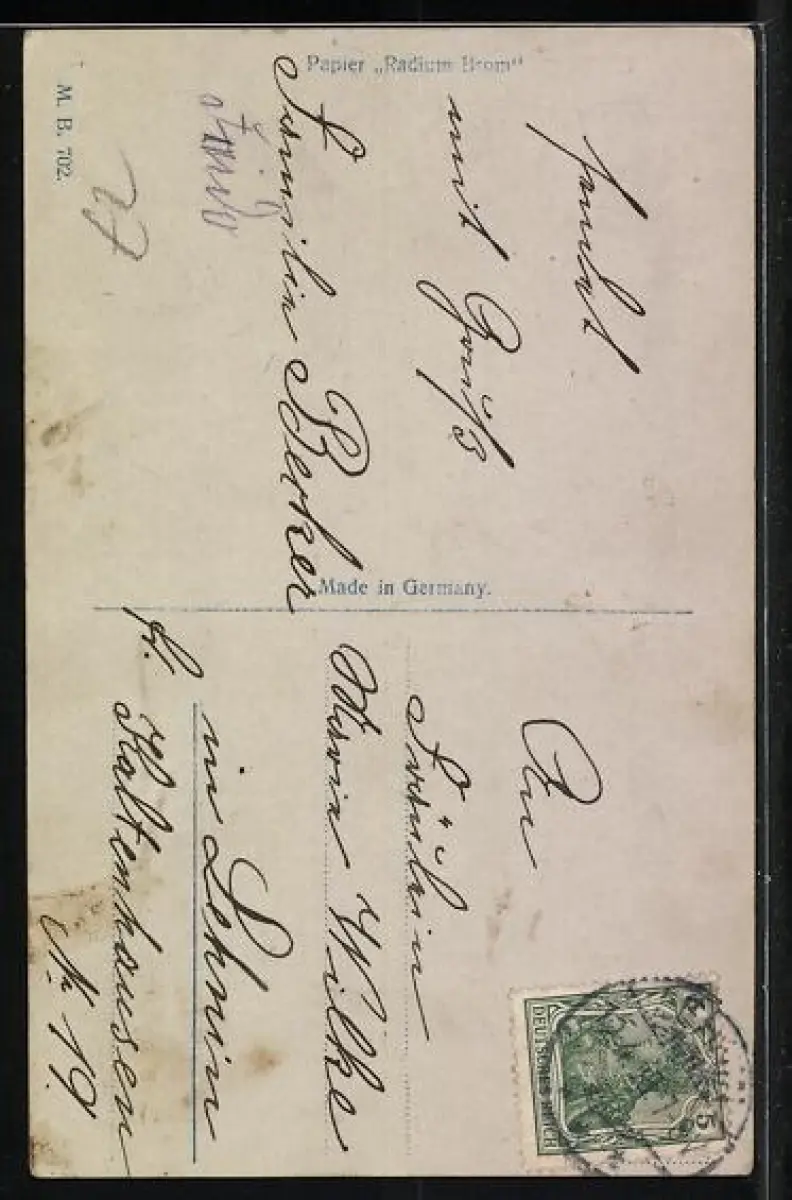 Papier „Radium Brom"
sendet
mit Gruß
Familie Becker
M. B. 702.
27
Made in Germany.
An
Fräulein
Wilke
in Lehnin
p. Kaltenhausen
No 19
DEUTSCHES REICH
5